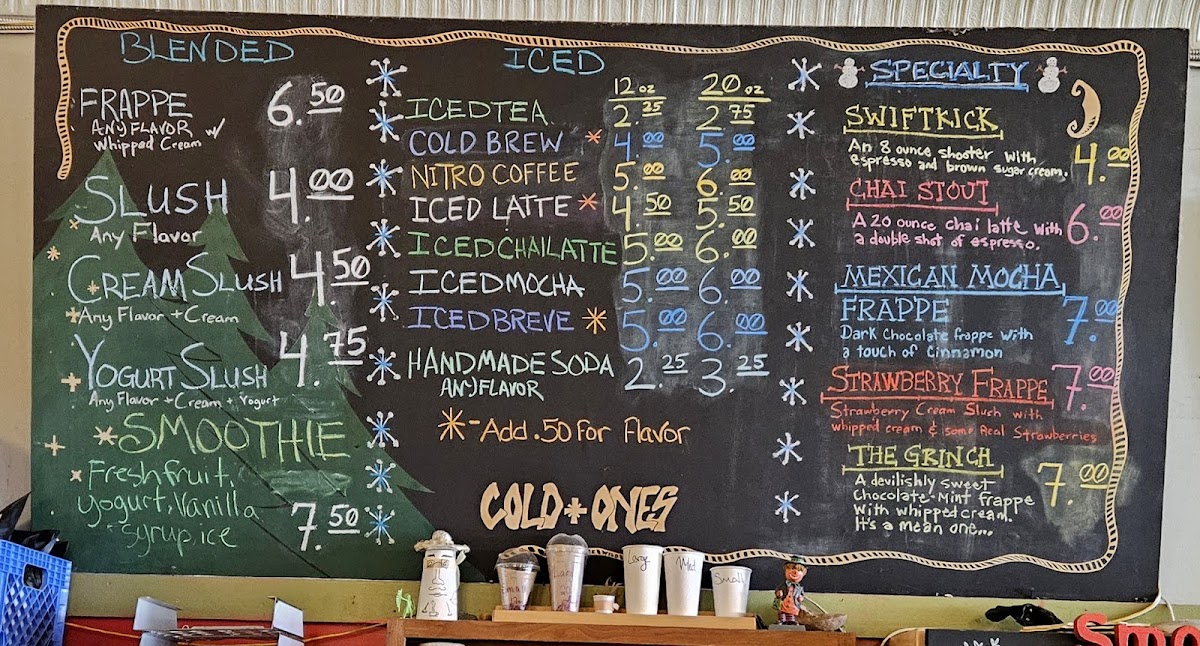 BLENDED
FRAPPE 6.50
ANY FLAVOR w/
Whipped Cream
SLUSH 4.00
Any Flavor
CREAM SLUSH 4.50
Any Flavor + Cream
YOGURT SLUSH 4.75
Any Flavor + Cream + Yogurt
SMOOTHIE
Fresh fruit,
yogurt, Vanilla
syrup, ice 7.50
ICED
12 oz 20 oz
ICED TEA 2.25 2.75
COLD BREW * 4.00 5.00
NITRO COFFEE 5.00 6.00
ICED LATTE * 4.50 5.50
ICED CHAI LATTE 5.00 6.00
ICED MOCHA 5.00 6.00
ICED BREVE * 5.00 6.00
HANDMADE SODA 2.25 3.25
ANY FLAVOR
* - Add .50 For Flavor
COLD + ONES
SPECIALTY
SWIFTKICK
An 8 ounce shooter with
espresso and brown sugar cream. 4.00
CHAI STOUT
A 20 ounce chai latte with
a double shot of espresso. 6.00
MEXICAN MOCHA
FRAPPE 7.00
Dark Chocolate frappe with
a touch of Cinnamon
STRAWBERRY FRAPPE 7.00
Strawberry Cream Slush with
whipped cream & some Real Strawberries
THE GRINCH 7.00
A devilishly sweet
Chocolate-Mint frappe
with whipped cream.
It's a mean one...
Small
Large
Large
Med
Small
Smo